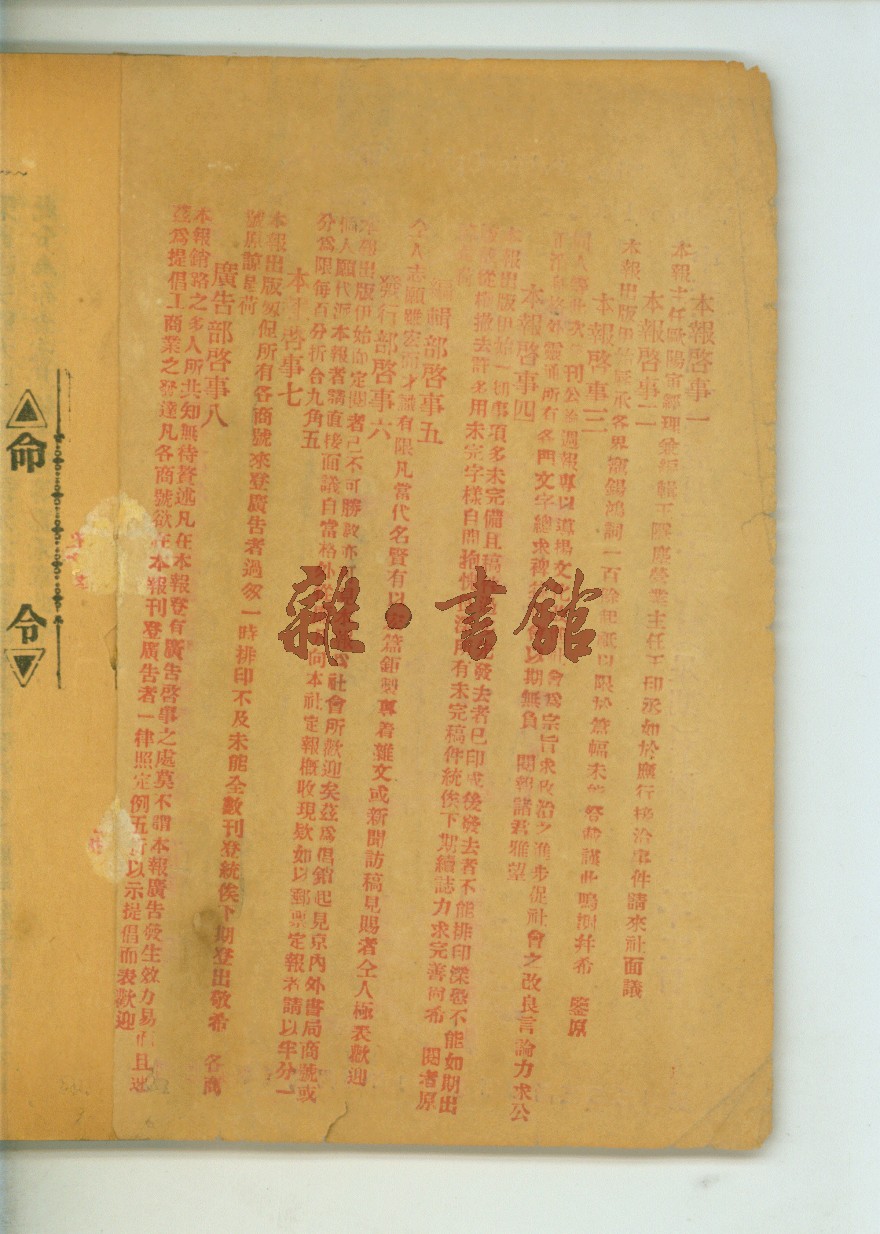 本報啓事一
本報主任歐陽 經理兼編輯王 營業主任王印丞如於應行接洽事件請來社面議
本報啓事二
本報出版伊始 承各界寵錫鴻詞一百餘 祇以限於篇幅未能 登載謹此鳴謝幷希 鑒原
本報啓事三
同人等此次 刊公論週報專以導揚文化 社會爲宗旨求政治之進步促社會之改良言論力求公
正消息格外靈通所有各門文字總求裨 以期無負 閱報諸君雅望
本報啓事四
本報出版伊始一切事項多未完備且稿 發去者已印成後發去者不能排印深恐不能如期出
版故從權撤去許多用未完字樣自問抱愧 所有未完稿件統俟下期續誌力求完善尚希 閱者原
諒是荷
編輯部啓事五
仝人志願雖宏而才識有限凡當代名賢有以 篇鉅製專着雜文或新聞訪稿見賜者仝人極表歡迎
發行部啓事六
本報出版伊始而定閱者已不可勝數亦 社會所歡迎矣茲爲倡銷起見京內外書局商號或
個人願代派本報者請直接面議自當格外 向本社定報概收現欵如以郵票定報者請以半分一
分爲限每百分折合九角五
本報啓事七
本報出版匆促所有各商號來登廣告者過多一時排印不及未能全數刊登統俟下期登出敬希 各商
號原諒是荷
廣告部啓事八
本報銷路之多人所共知無待贅述凡在本報登有廣告啓事之處莫不謂本報廣告發生效力易而且速
茲爲提倡工商業之發達凡各商號欲在本報刊登廣告者一律照定例五折以示提倡而表歡迎
命令
雜·書館